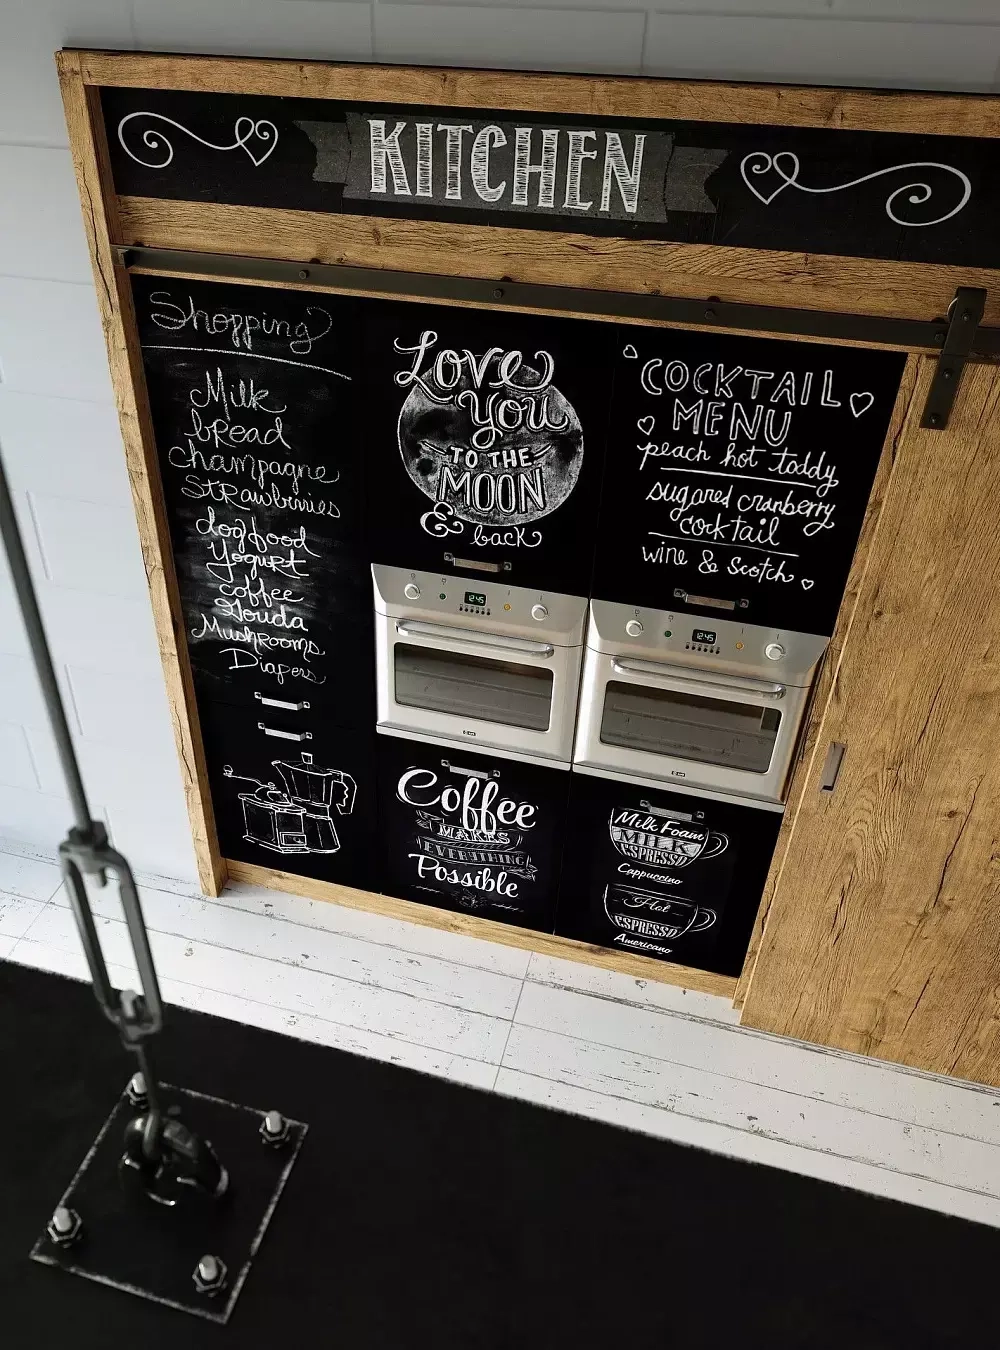 KITCHEN
Shopping
Milk
bread
champagne
Strawbinies
dogfood
Yogurt
coffee
Gouda
Mushrooms
Diapers
Love
You
TO THE
MOON
& back
COCKTAIL
MENU
peach hot toddy
sugared cranberry
cocktail
wine & Scotch
12:45
12:45
Coffee
MAKES
EVERYTHING
Possible
Milk Foam
MILK
ESPRESSO
Cappuccino
Hot
ESPRESSO
Americano